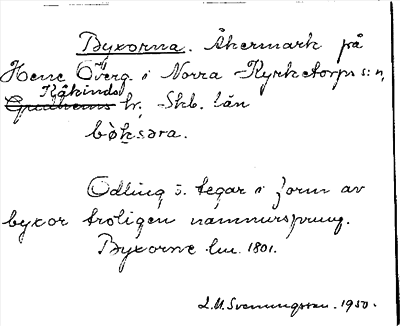 Byxorna. Åkermark på
Hene Överg. i Norra Kyrketorps s:n,
Kåkinds
Gudhems hr, Skb. län
bøksəra.
Odling ö. tegar i form av
byxor troligen namnursprung.
Byxorne lm. 1801.
L.M. Svenungsson. 1950.